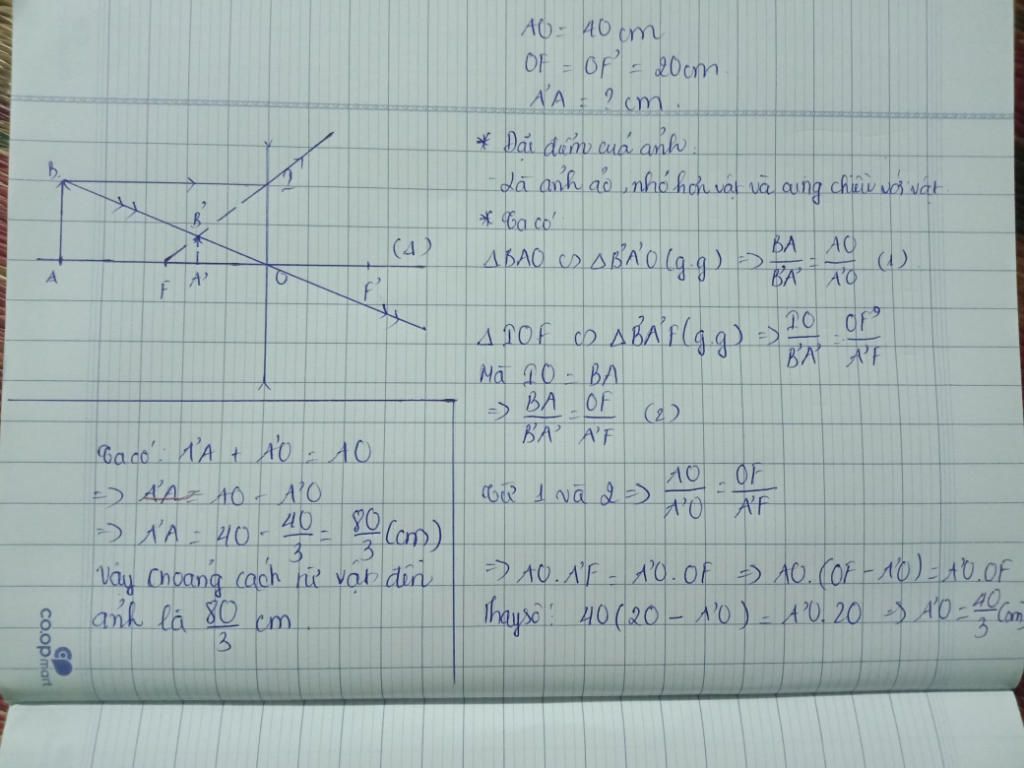 AO = 40 cm
OF = OF' = 20cm
A'A = ? cm.
* Đặc điểm của ảnh.
- Là ảnh ảo, nhỏ hơn vật và cùng chiều với vật.
* Ta có
ΔBAO ∽ ΔB'A'O (g.g) => BA/B'A' = AO/A'O (1)
ΔIOF ∽ ΔB'A'F (g.g) => IO/B'A' = OF/A'F
Mà IO = BA
=> BA/B'A' = OF/A'F (2)
Từ 1 và 2 => AO/A'O = OF/A'F
=> AO.A'F = A'O.OF => AO.(OF - A'O) = A'O.OF
Thay số: 40(20 - A'O) = A'O.20 => A'O = 40/3 (cm)
B
I
B'
(Δ)
A
F
A'
O
F'
Ta có: A'A + A'O = AO
=> A'A = AO - A'O
=> A'A = 40 - 40/3 = 80/3 (cm)
Vậy khoảng cách từ vật đến
ảnh là 80/3 cm.
co.opmart